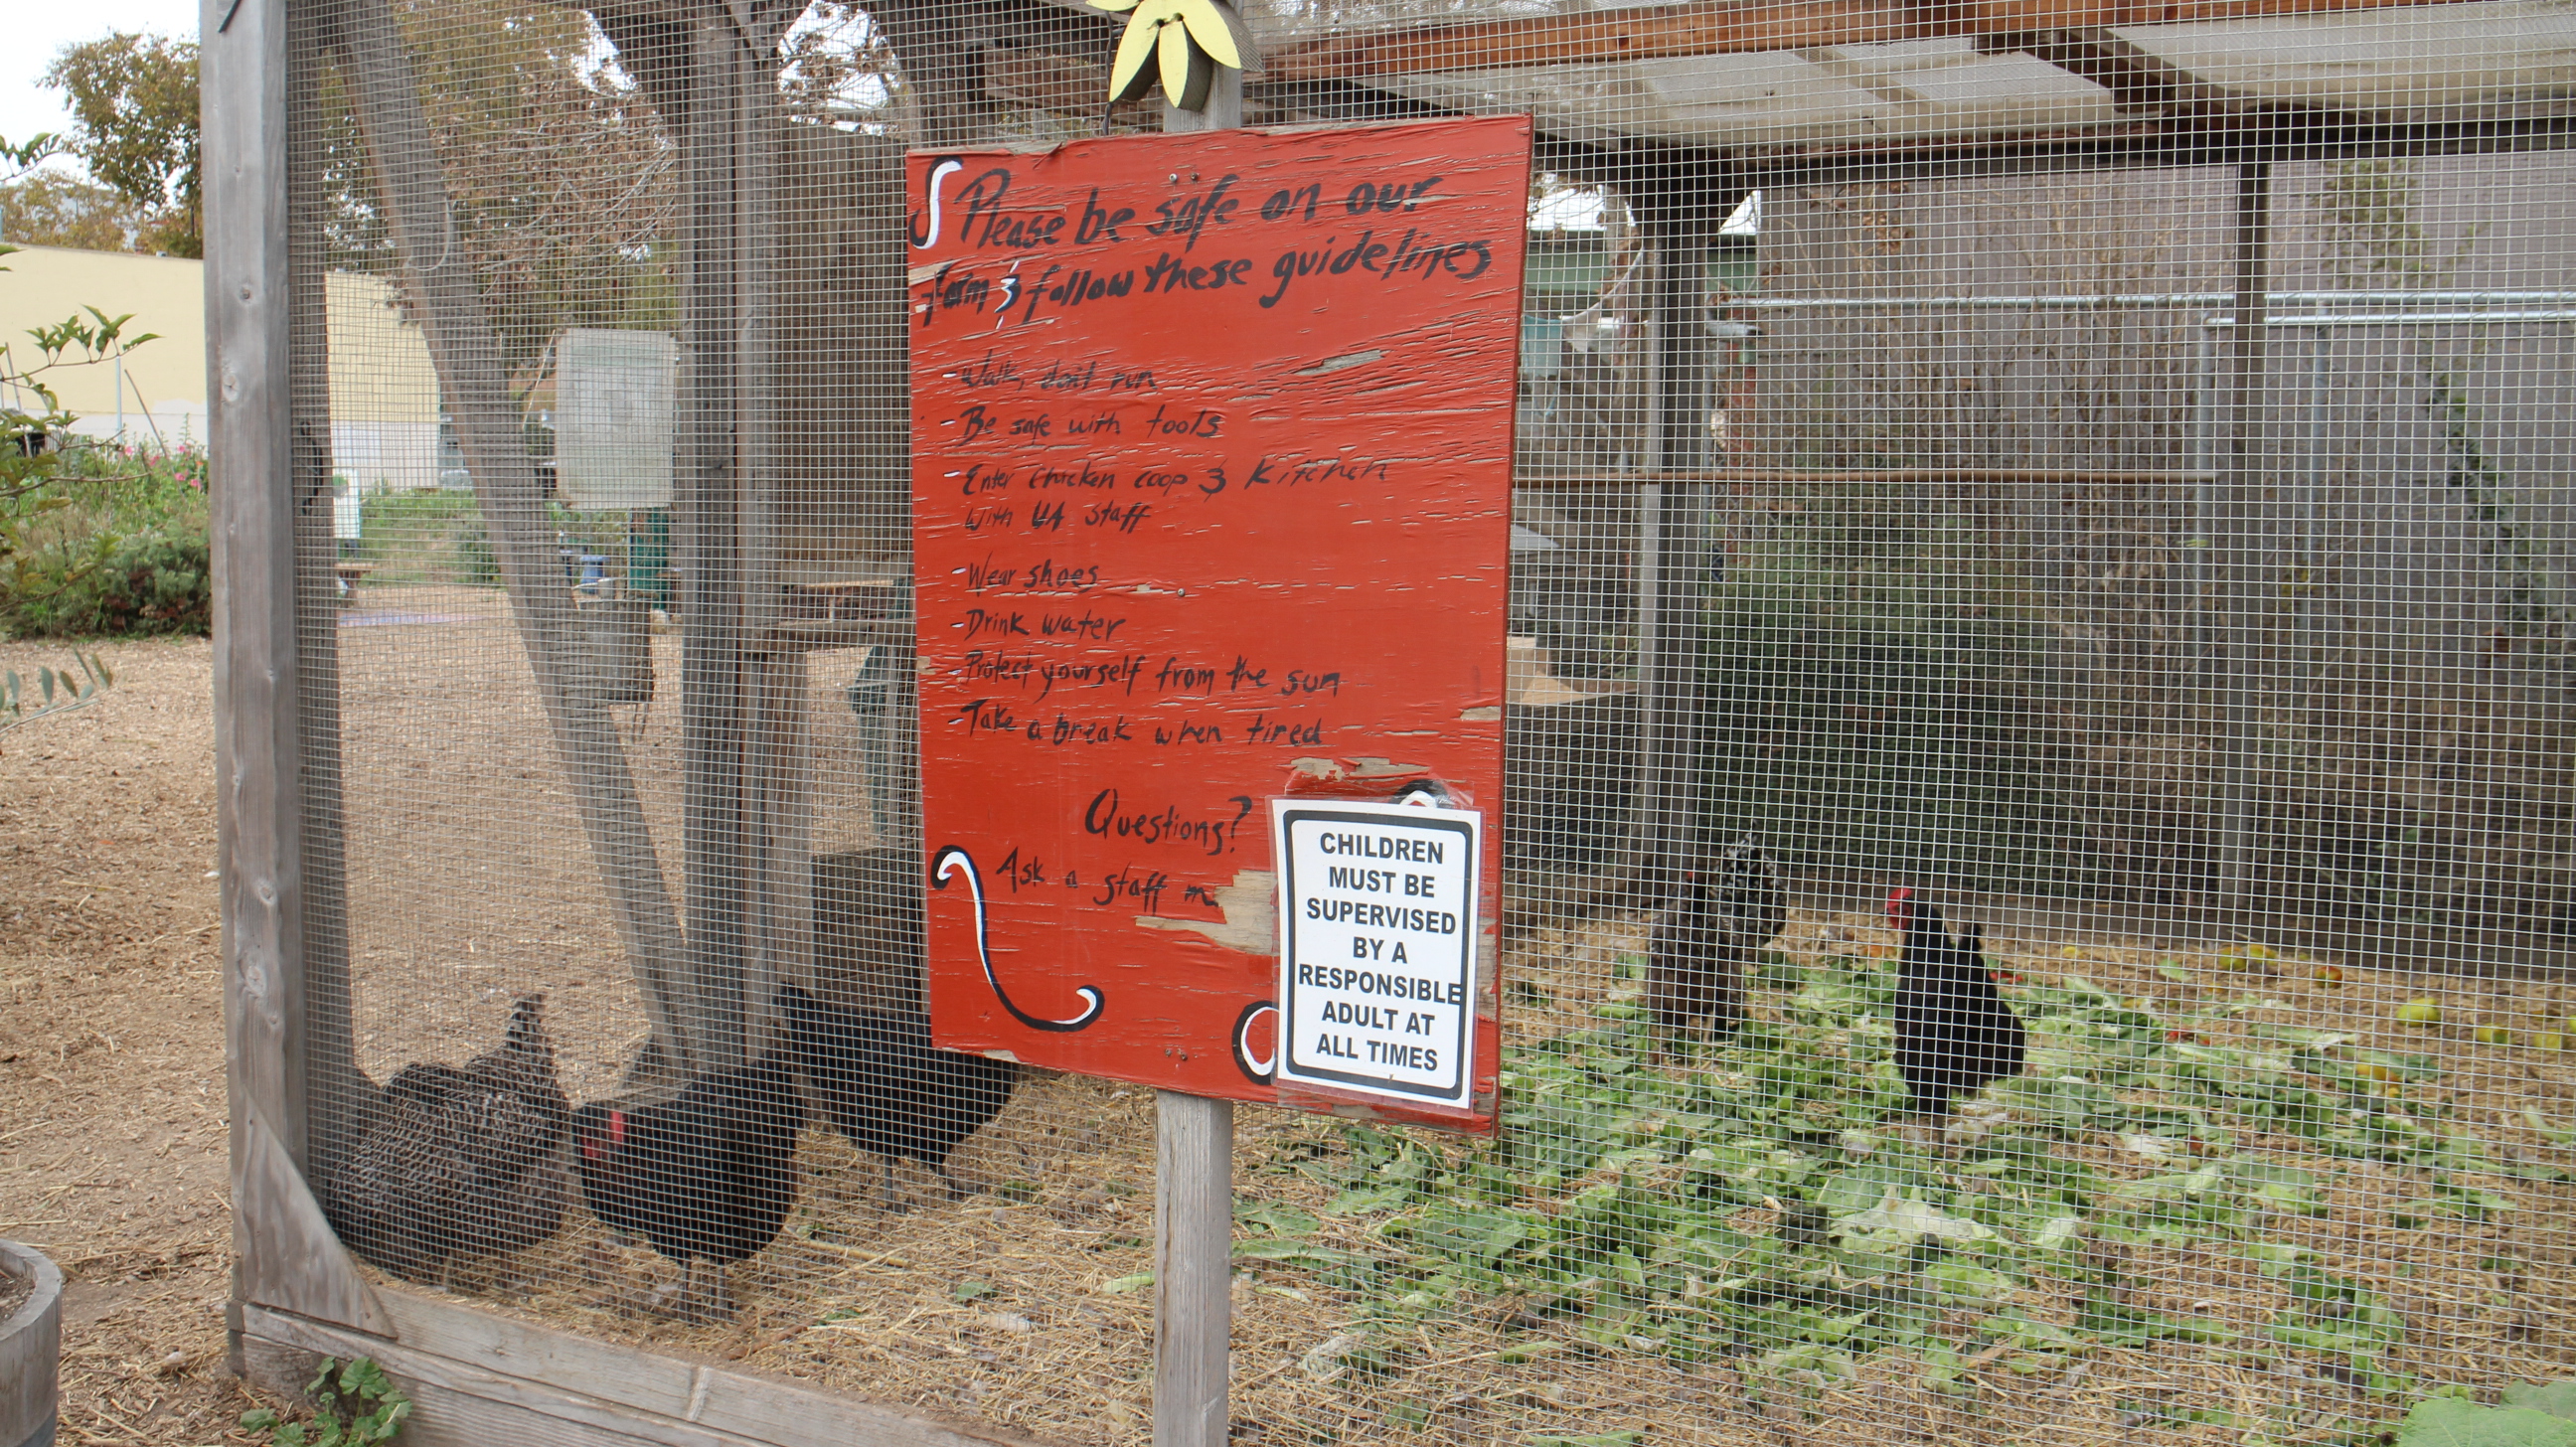 Please be safe on our
farm & follow these guidelines
- Walk, don't run
- Be safe with tools
- Enter chicken coop & kitchen
with UA staff
- Wear shoes
- Drink water
- Protect yourself from the sun
- Take a break when tired
Questions?
Ask a staff m
CHILDREN
MUST BE
SUPERVISED
BY A
RESPONSIBLE
ADULT AT
ALL TIMES